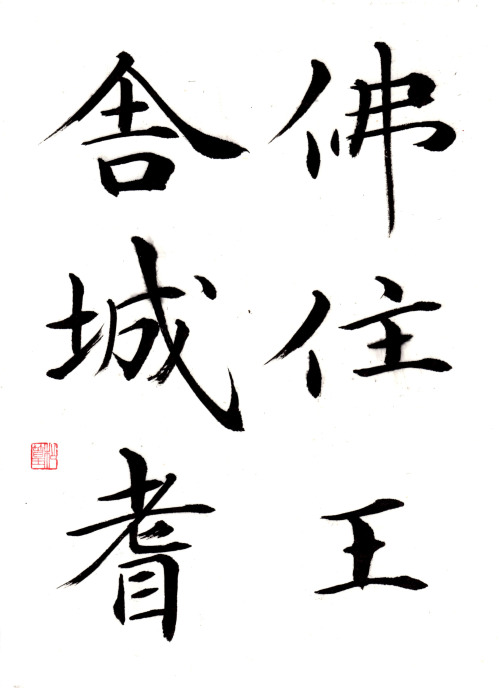 佛住王
舍城耆